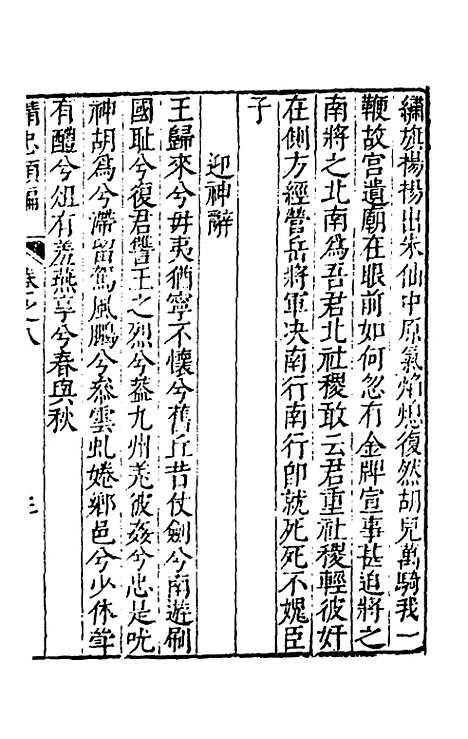 繡旗楊揚出朱仙中原氣焰熄復然胡兒萬騎我一
鞭故宮遺廟在眼前如何忽有金牌宣事甚迫將之
南將之北南為吾君北社稷敢云君重社稷輕彼奸
在側方經營岳將軍决南行南行即就死死不媿臣
子
迎神辭
王歸來兮毋夷猶寧不懷兮舊丘昔仗劍兮南遊刷
國耻兮復君讐王之烈兮葢九州羌彼姦兮忠是吮
神胡為兮滯留駕風鵬兮叅雲虬婘鄉邑兮少休
有醴兮俎有羞燕享兮春與秋
精忠類編
卷之八
三